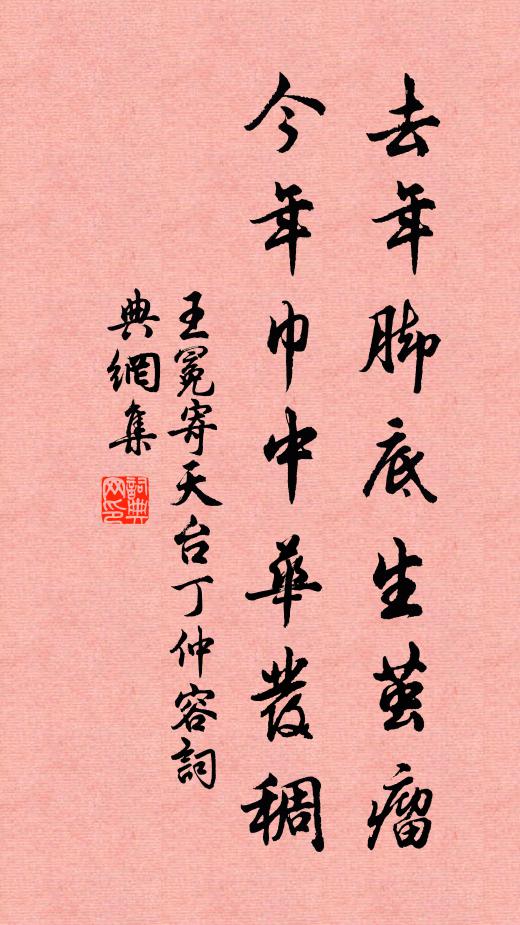 去年脚底生茧瘤
今年巾中華發稠
王冕寄天台丁仲容詞
典網集
詞典网印